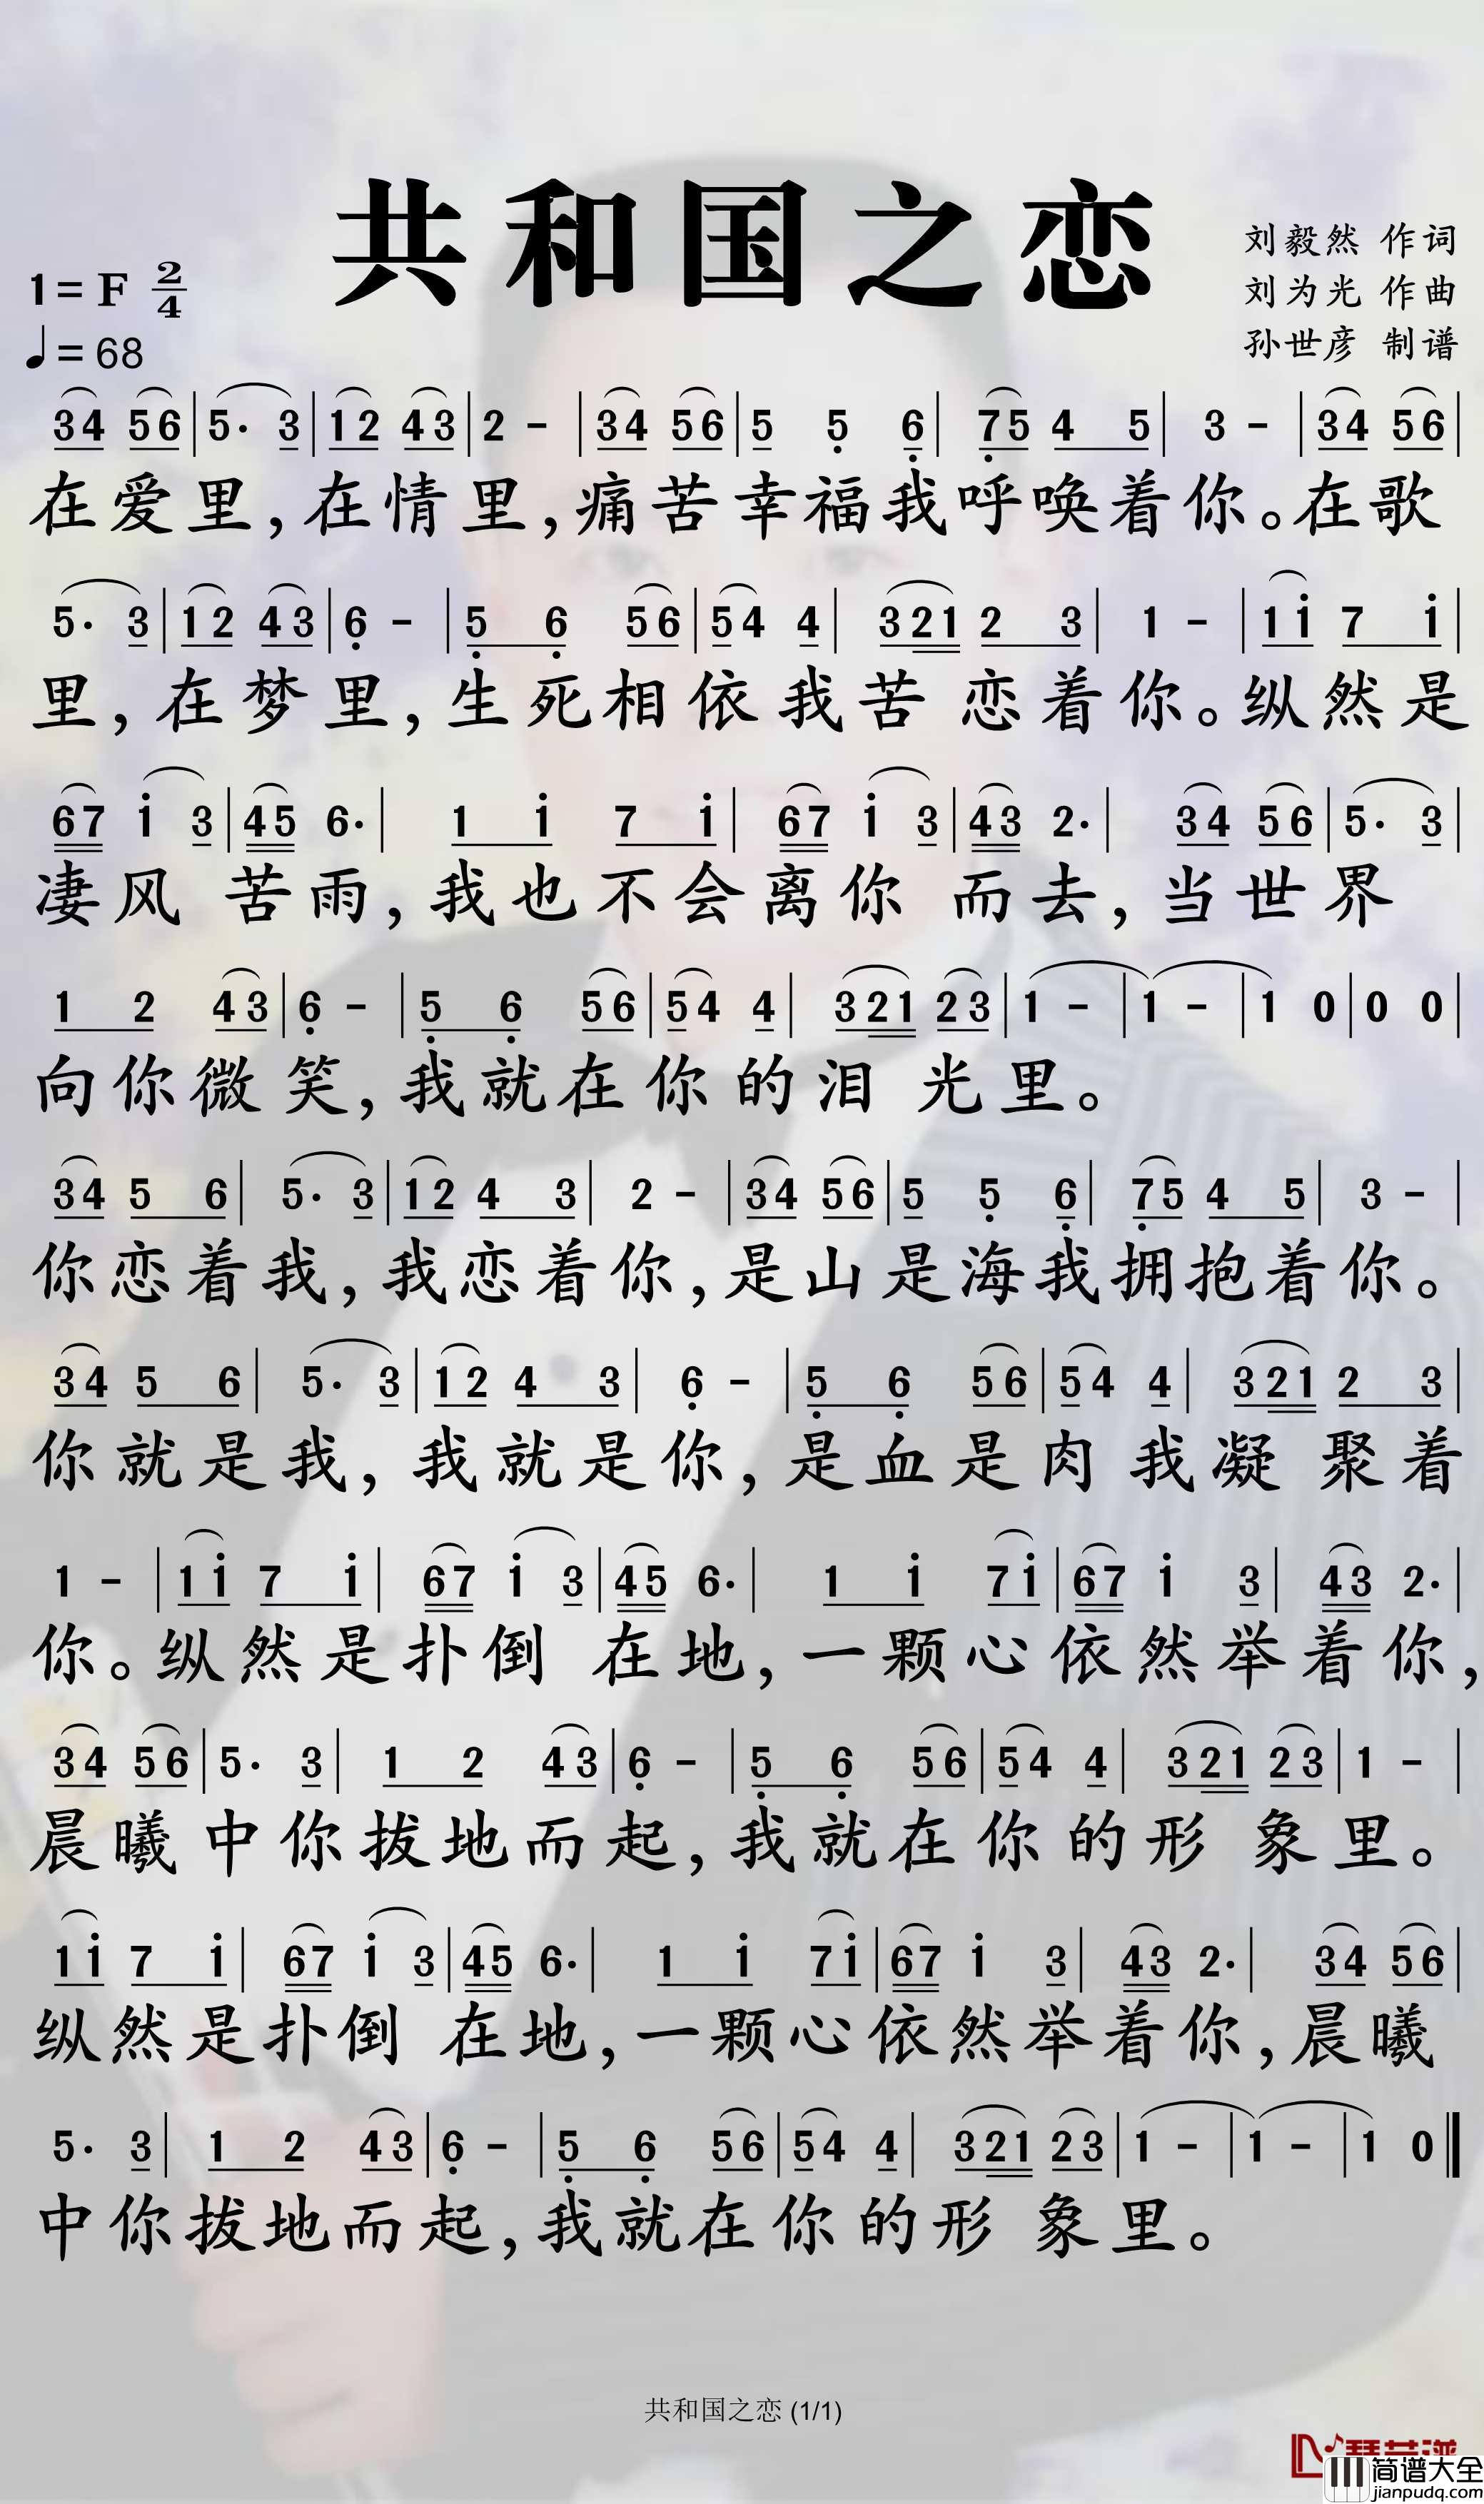 共和国之恋
1=F 2/4
♩=68
刘毅然 作词
刘为光 作曲
孙世彦 制谱
34 56|5· 3|12 43|2 -|34 56|5 5̣ 6̣|7̣5 4 5|3 -|34 56|
在爱里,在情里,痛苦幸福我呼唤着你。在歌
5· 3|12 43|6̣ -|5̣ 6̣ 56|54 4|321 2 3|1 -|1i 7 i|
里,在梦里,生死相依我苦 恋着你。纵然是
67 i 3|45 6·|1 i 7 i|67 i 3|43 2·|34 56|5· 3|
凄风 苦雨,我也不会离你 而去,当世界
1 2 43|6̣ -|5̣ 6̣ 56|54 4|321 23|1 -|1 -|1 0|0 0|
向你微笑,我就在你的泪 光里。
34 5 6|5· 3|12 4 3|2 -|34 56|5 5̣ 6̣|7̣5 4 5|3 -|
你恋着我,我恋着你,是山是海我拥抱着你。
34 5 6|5· 3|12 4 3|6̣ -|5̣ 6̣ 56|54 4|321 2 3|
你就是我,我就是你,是血是肉 我凝 聚着
1 -|1i 7 i|67 i 3|45 6·|1 i 7i|67 i 3|43 2·|
你。纵然是扑倒 在地,一颗心依然举着你,
34 56|5· 3|1 2 43|6̣ -|5̣ 6̣ 56|54 4|321 23|1 -|
晨曦中你拔地而起,我就在你的形 象里。
1i 7 i|67 i 3|45 6·|1 i 7i|67 i 3|43 2·|34 56|
纵然是扑倒 在地,一颗心依然举着你,晨曦
5· 3|1 2 43|6̣ -|5̣ 6̣ 56|54 4|321 23|1 -|1 -|1 0‖
中你拔地而起,我就在你的形 象里。
共和国之恋 (1/1)
简谱大全
jianpudq.com